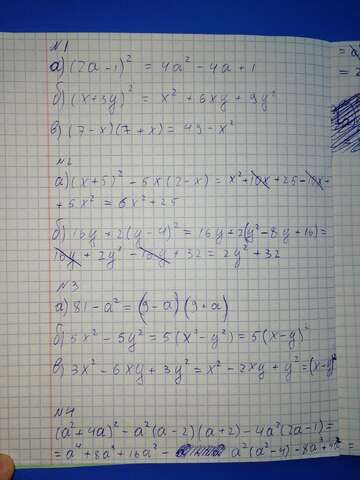 №1
а) (2a-1)² = 4a² - 4a + 1
б) (x+3y)² = x² + 6xy + 9y²
в) (7-x)(7+x) = 49 - x²
№2
а) (x+5)² - 5x(2-x) = x² + 10x + 25 - 10x +
+ 5x² = 6x² + 25
б) 16y + 2(y-4)² = 16y + 2(y² - 8y + 16) =
16y + 2y² - 16y + 32 = 2y² + 32
№3
а) 81 - a² = (9-a)(9+a)
б) 5x² - 5y² = 5(x² - y²) = 5(x-y)²
в) 3x² - 6xy + 3y² = x² - 2xy + y² = (x-y)²
№4
(a²+4a)² - a²(a-2)(a+2) - 4a²(2a-1) =
= a⁴ + 8a³ + 16a² - a²(a²-4) - 8a³ + 4a² =